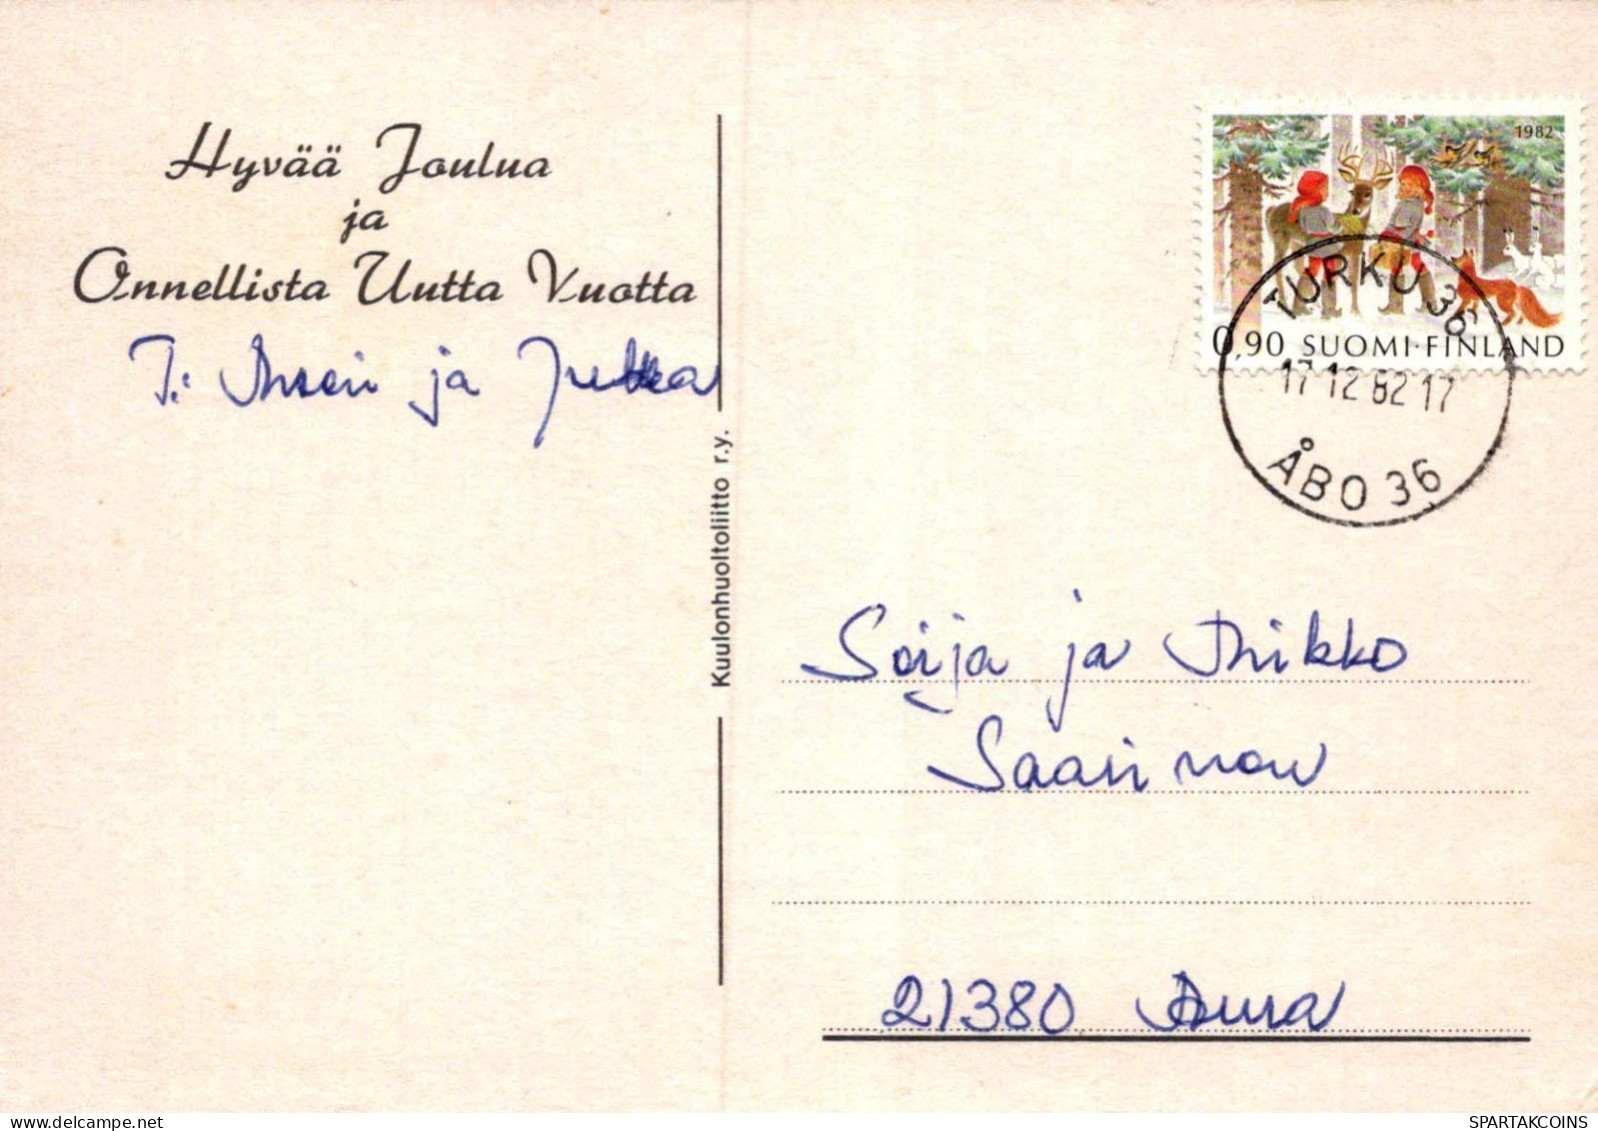 Hyvää Joulua
ja
Onnellista Uutta Vuotta
T: ja Jukka
Kuulonhuoltoliitto r.y.
1982
0,90 SUOMI-FINLAND
TURKU 36
17 12 82 17
ÅBO 36
Soija ja Mikko
Saarinow
21380 Aura
delcampe.net
SPARTAKCOINS